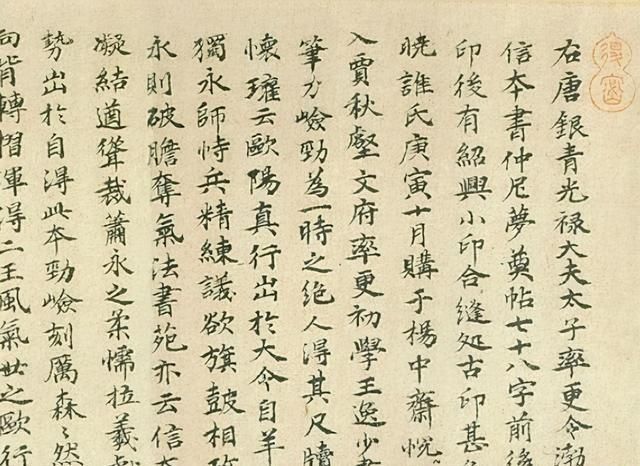 右唐銀青光禄大夫太子率更令渤
信本書仲尼夢奠帖七十八字前後
印後有紹興小印合縫処古印甚
曉誰氏庚寅十月購于楊中齋恱
入賈秋壑文府率更初學王逸少書
筆力嶮勁為一時之絶人得其尺牘
懷瓘云歐陽真行出於大令自羊
獨永師恃兵精練議欲旗鼓相攻
永則破膽奪氣法書苑亦云信本
凝結遒聳裁蕭永之柔懦拉羲獻
勢出於自得此本勁嶮刻厲森々然
向背轉摺渾得二王風氣世之歐行